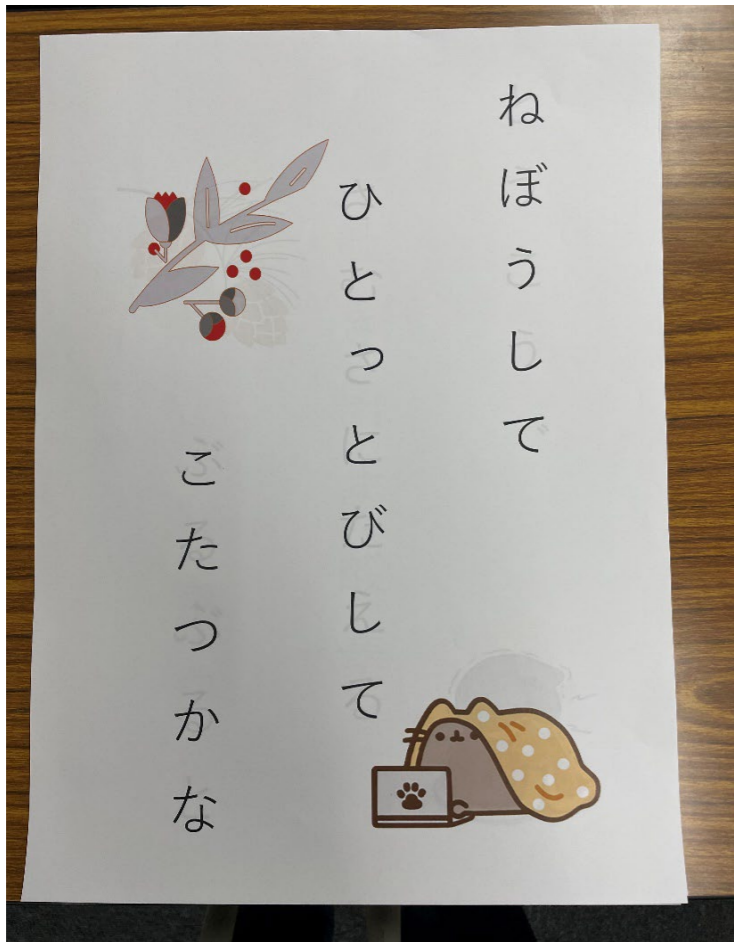 ねぼうして
ひとっとびして
こたつかな